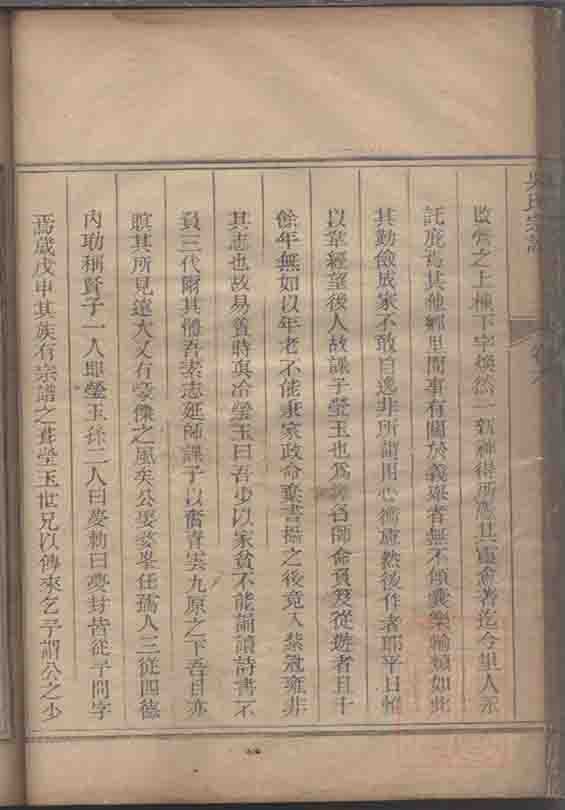 吳氏宗譜
監督之上棟下宇煥然一新神得所憑其靈愈著迄今里人永
託庇焉其他鄉里間事有關於義舉者無不傾囊樂輸類如此
其勤儉成家不敢自逸非所謂困心衡慮然後作者耶平日惟
以窮經望後人故課子瑩玉也為擇名師命負笈從遊者且十
餘年無如以年老不能秉家政命棄書操之後竟入紫冠雍非
其志也故易簀時與冶瑩玉曰吾少以家貧不能誦讀詩書不
員三代爾其體吾素志延師課子以奮青雲九原之下吾目亦
瞑其所見遠大又有豪傑之風矣公娶婺峯任孺人三從四德
內助稱賢子一人即瑩玉孫二人曰夢勅曰夢封皆從予問字
焉歲戊申其族有宗譜之葺瑩玉世兄以傳來乞予謂公之少